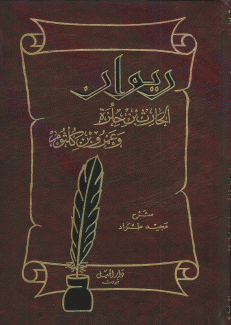 ديوان
الحارث بن حلزة
وعمرو بن كلثوم
شرح
مجيد طراد
دار الجيل
بيروت